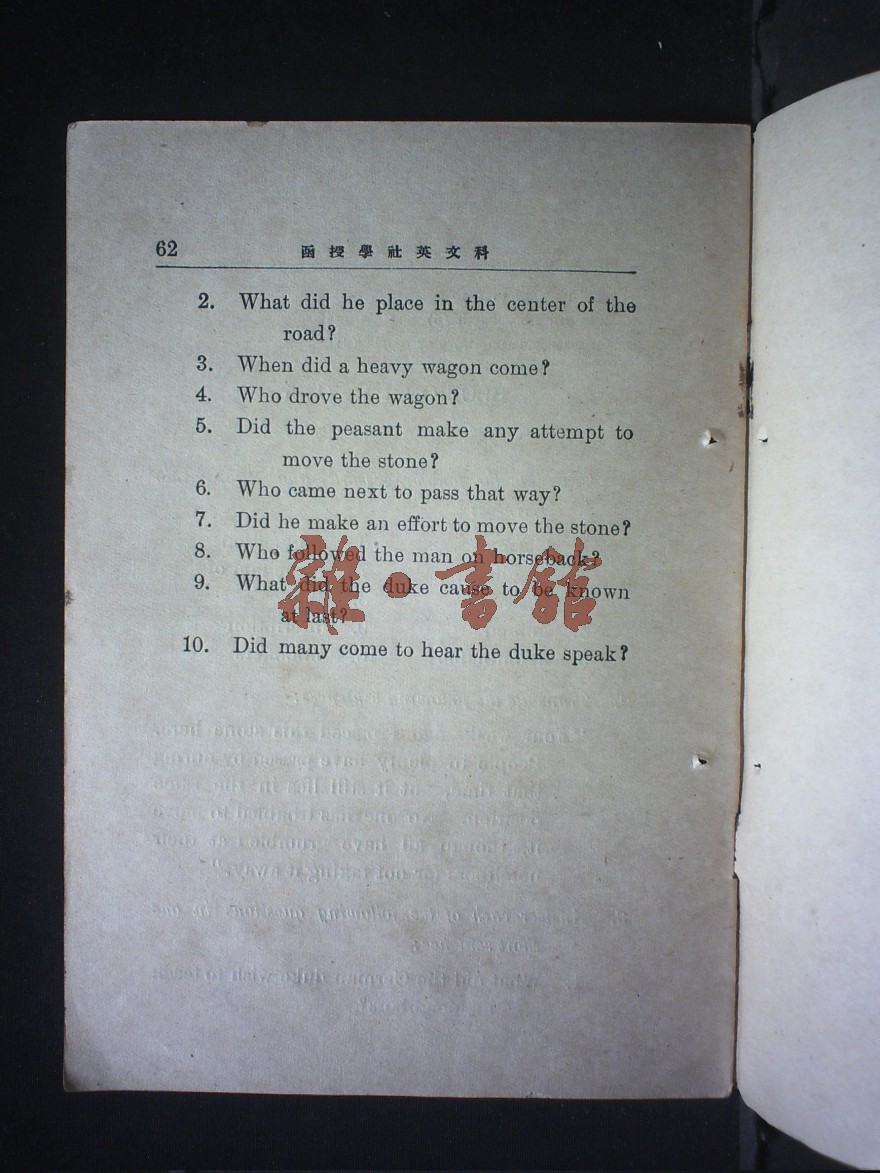 62 函授學社英文科
2. What did he place in the center of the
road?
3. When did a heavy wagon come?
4. Who drove the wagon?
5. Did the peasant make any attempt to
move the stone?
6. Who came next to pass that way?
7. Did he make an effort to move the stone?
8. Who followed the man on horseback?
9. What did the duke cause to be known
at last?
10. Did many come to hear the duke speak?
雜·書館